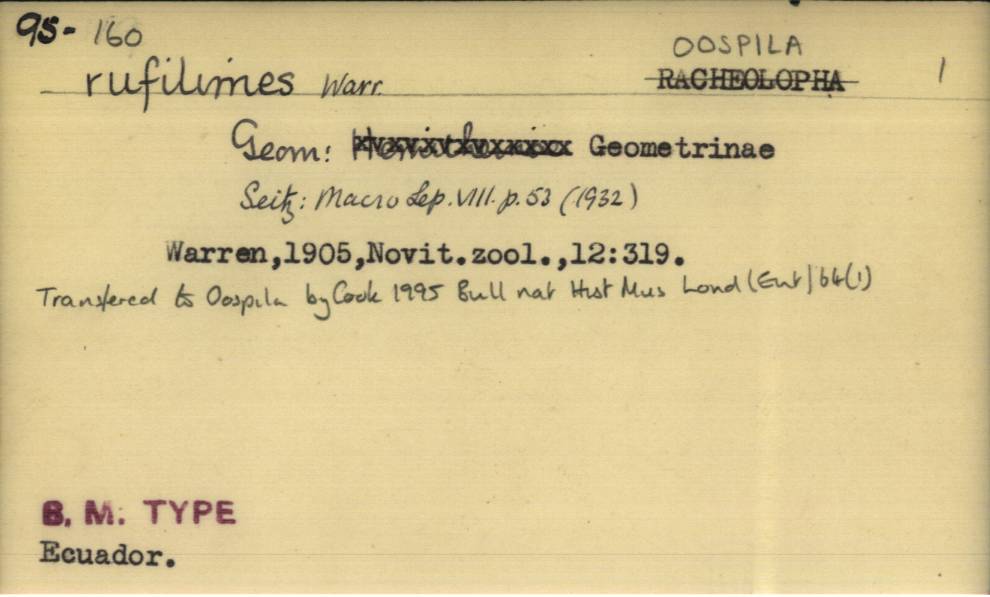 95- 160
OOSPILA
rufilimes Warr. RACHEOLOPHA 1
Geom: Geometrinae
Seitz: Macro Lep. VIII. p. 53 (1932)
Warren,1905,Novit.zool.,12:319.
Transfered to Oospila by Cook 1995 Bull nat Hist Mus Lond (Ent) 64(1)
B. M. TYPE
Ecuador.